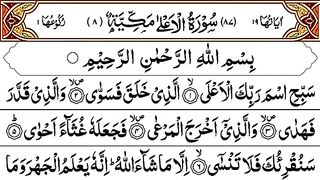 اٰیَاتُهَا ١٩ (٨٧) سُوْرَةُ الْاَعْلٰى مَكِّیَّةٌ (٨) رُكُوْعُهَا ١
بِسْمِ اللّٰهِ الرَّحْمٰنِ الرَّحِیْمِ
سَبِّحِ اسْمَ رَبِّكَ الْاَعْلَى ۙ﴿١﴾ الَّذِیْ خَلَقَ فَسَوّٰى ۪ۙ﴿٢﴾ وَالَّذِیْ قَدَّرَ
فَهَدٰى ۪ۙ﴿٣﴾ وَالَّذِیْۤ اَخْرَجَ الْمَرْعٰى ۪ۙ﴿٤﴾ فَجَعَلَهٗ غُثَآءً اَحْوٰى ؕ﴿٥﴾
سَنُقْرِئُكَ فَلَا تَنْسٰۤى ۙ﴿٦﴾ اِلَّا مَا شَآءَ اللّٰهُ ؕ اِنَّهٗ یَعْلَمُ الْجَهْرَ وَمَا